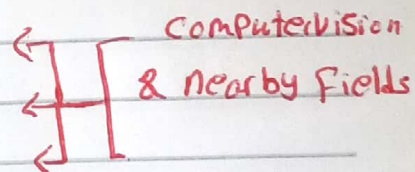 Computervision
& nearby Fields